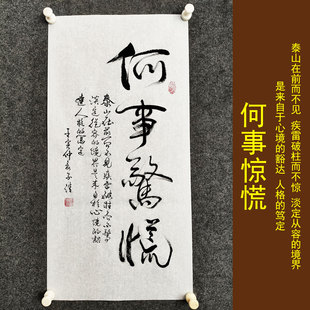 泰山在前而不见 疾雷破柱而不惊 淡定从容的境界
是来自于心境的豁达 人格的笃定
何事惊慌
何事驚慌
泰山在前而不見疾雷破柱而不驚
淡定從容的境界是来自於心境的豁
達人格的篤定